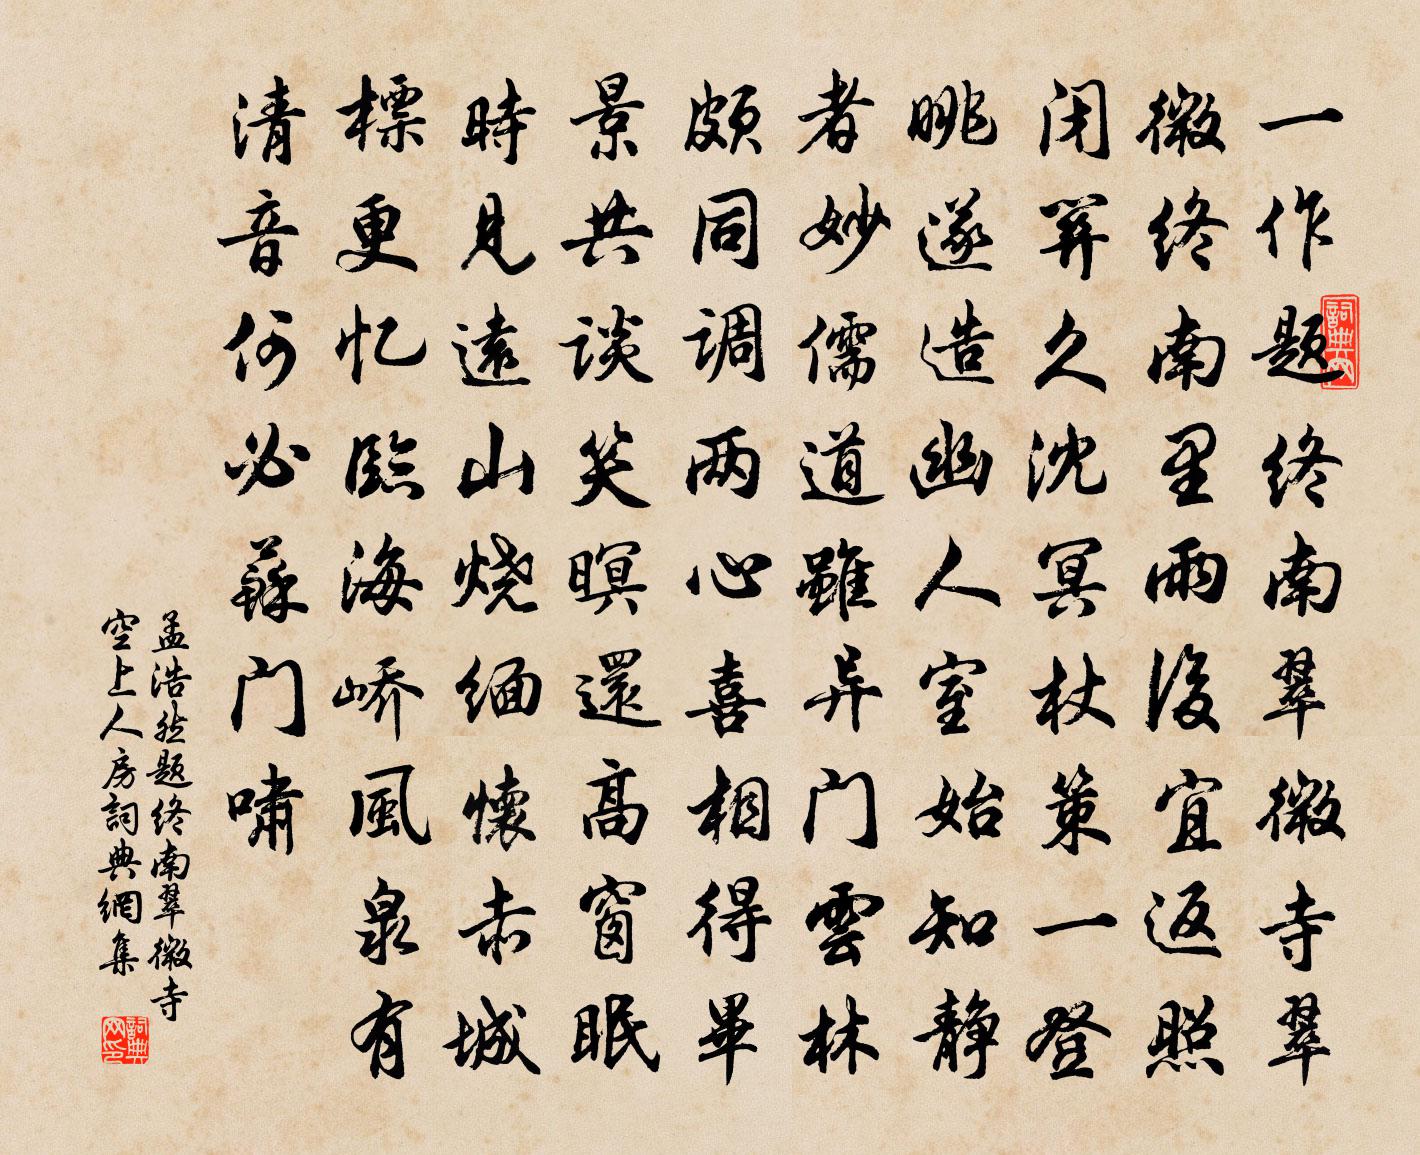 一作题终南翠微寺翠
微终南里雨後宜返照
闭关久沈冥杖策一登
眺遂造幽人室始知静
者妙儒道虽异门雲林
颇同调两心喜相得毕
景共谈笑暝還高窗眠
時见遠山烧缅懷赤城
標更忆臨海峤風泉有
清音何必蘇门啸
孟浩然题终南翠微寺
空上人房詞典網集
詞典网
詞典网印